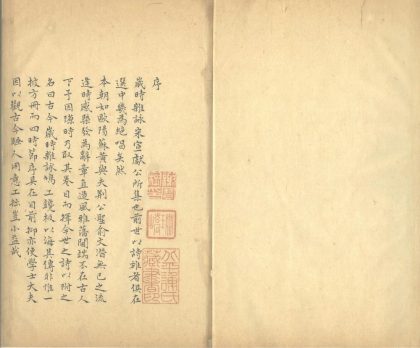 序
歲時雜詠宋宣獻公所集也前世以詩雄者俱在
選中幾為絕唱矣然
本朝如歐陽蘇黃與夫荊公聖俞文潛無己之流
逢時感慨發為辭章直造風雅藩閫端不在古人
下予因隙時乃取其卷目而擇今世之詩以附之
名曰古今歲時雜詠鳩工鏤板以海其傳非惟一
披方冊而四時節序具在目前抑亦使學士大夫
因以觀古今騷人用意工拙豈小益哉